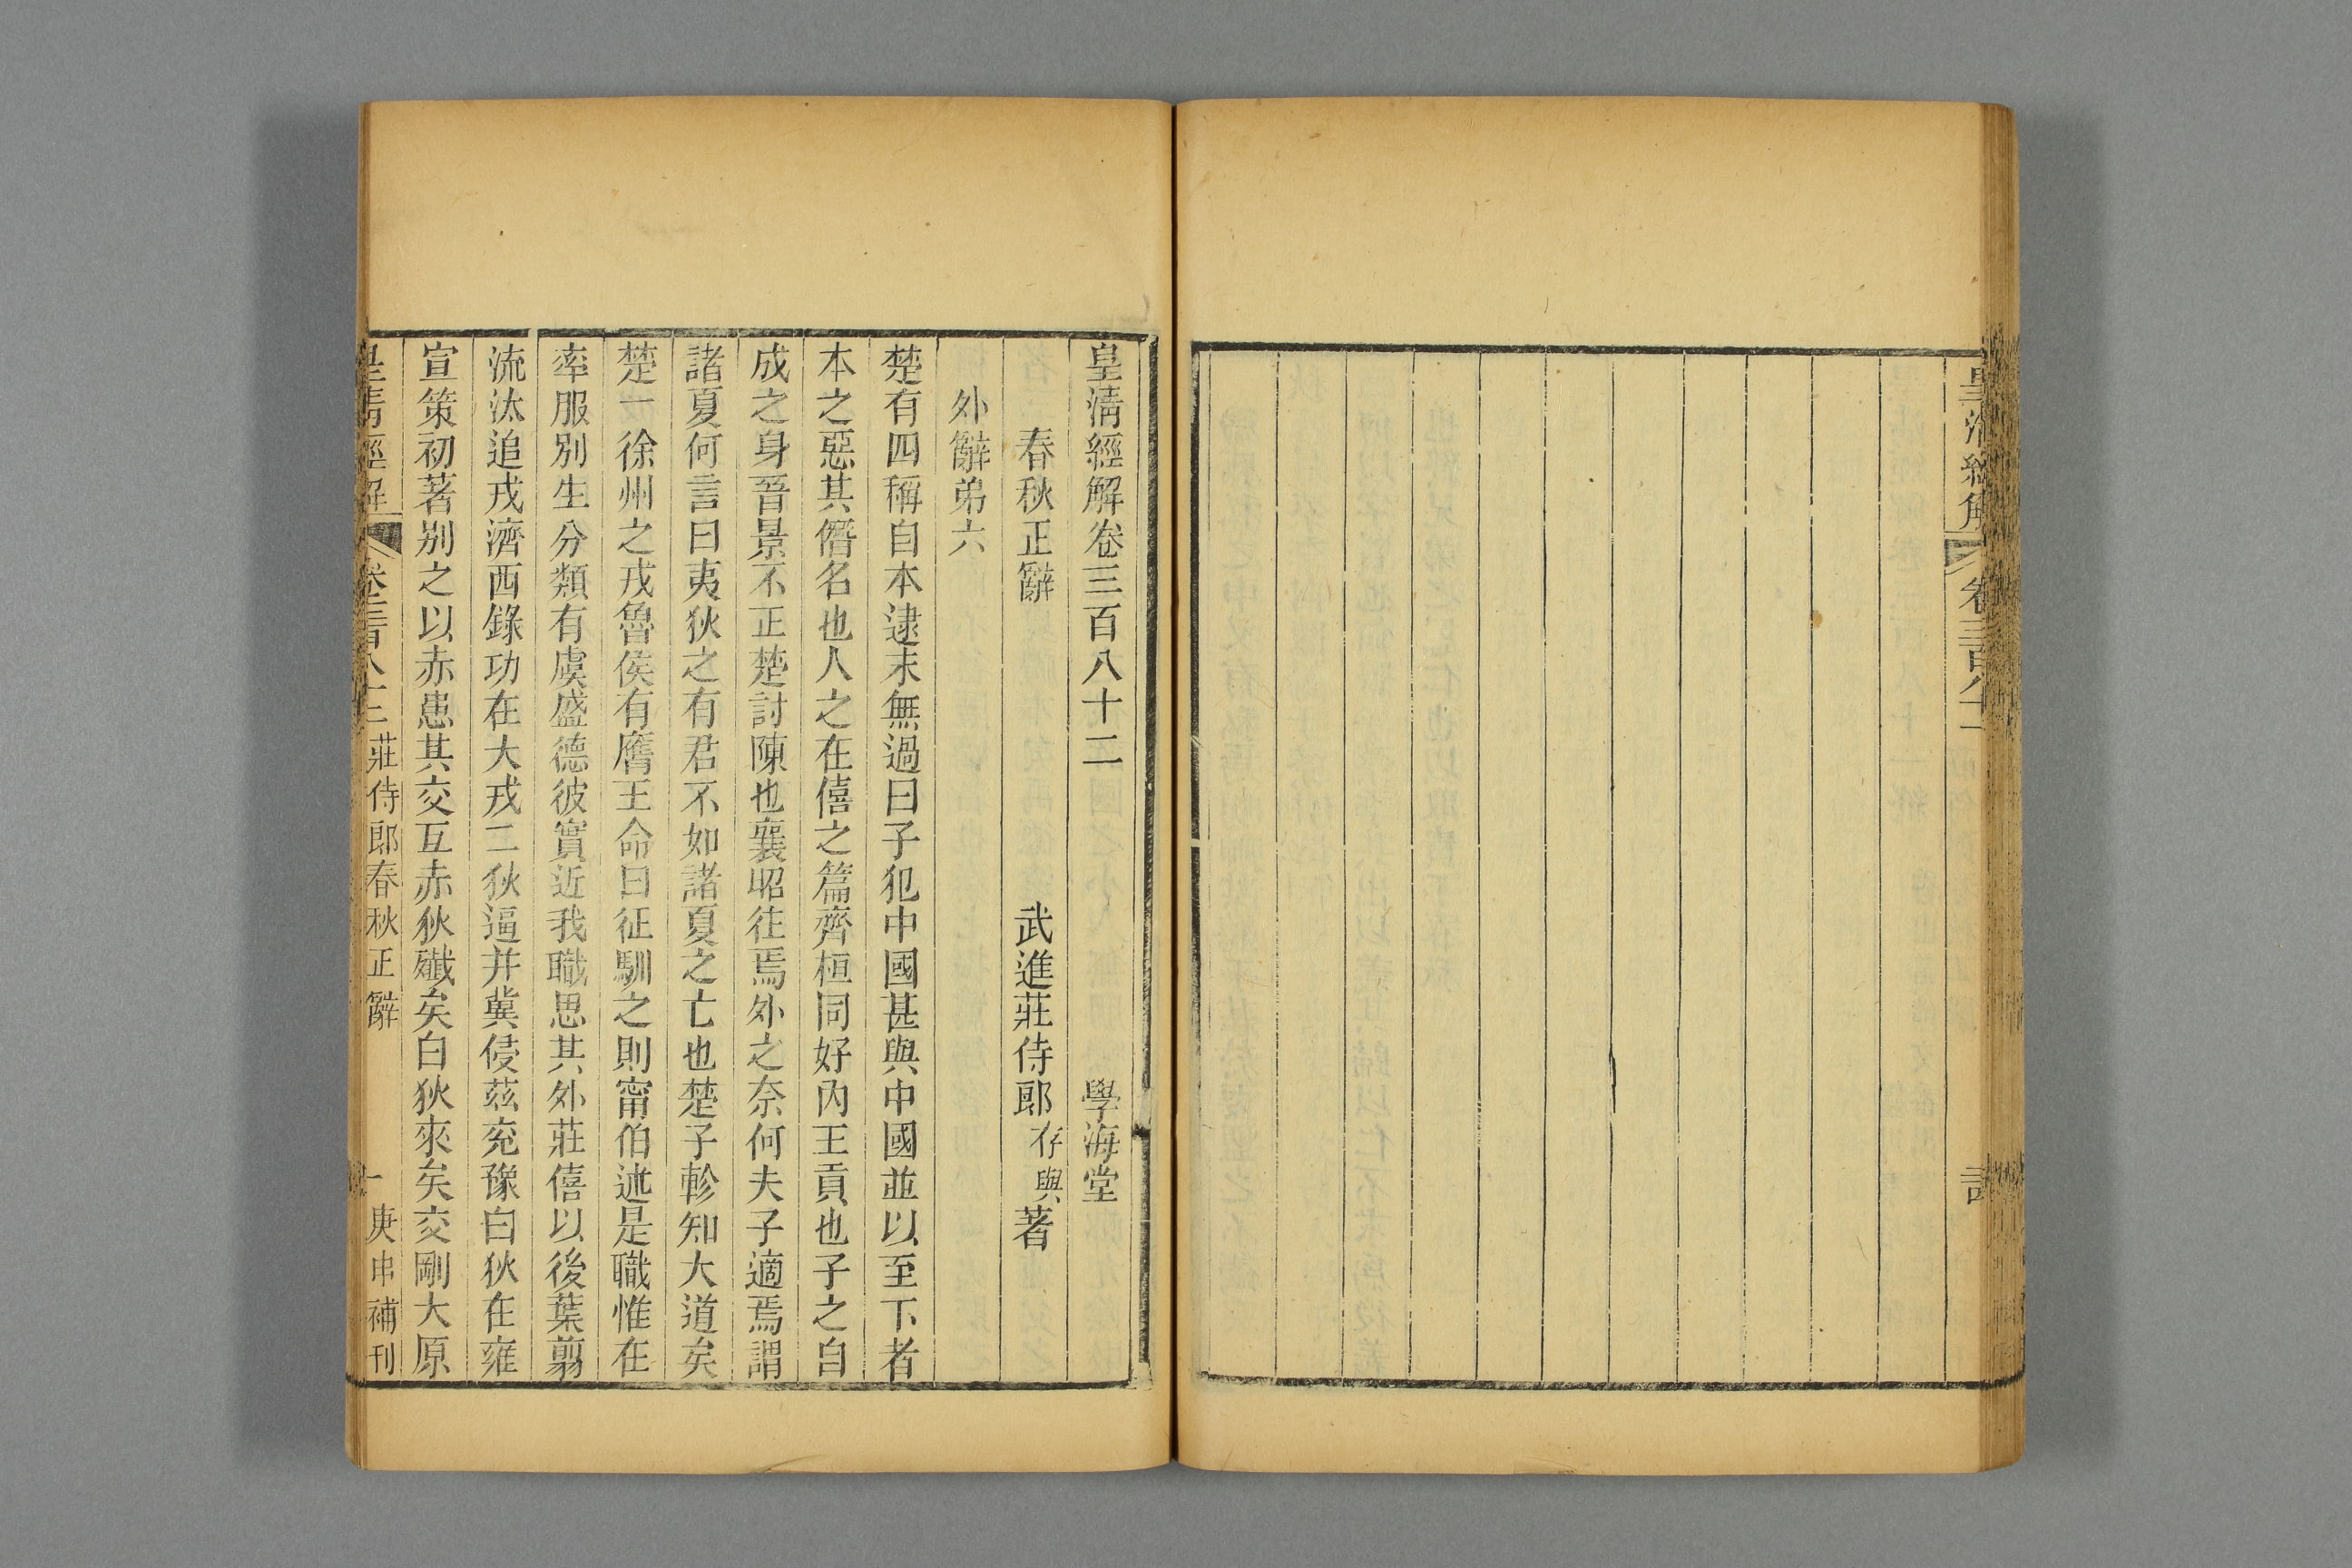 皇清經解 卷三百八十一
皇清經解卷三百八十二 學海堂
春秋正辭 武進莊侍郎存與著
外辭弟六
楚有四稱自本逮末無過曰子犯中國甚與中國並以至下者
本之惡其僭名也人之在僖之篇齊桓同好內王貢也子之自
成之身晉景不正楚討陳也襄昭往焉外之奈何夫子適焉謂
諸夏何言曰夷狄之有君不如諸夏之亡也楚子軫知大道矣
楚一徐州之戎魯侯有膺王命曰征馴之則甯伯述是職惟在
率服別生分類有虞盛德彼實近我職思其外莊僖以後葉翦
流汰追戎濟西錄功在大戎二狄逼并冀侵茲兖豫白狄在雍
宣策初著別之以赤患其交互赤狄殲矣白狄來矣交剛大原
皇清經解 卷三百八十二 莊侍郎春秋正辭 一 庚申補刊